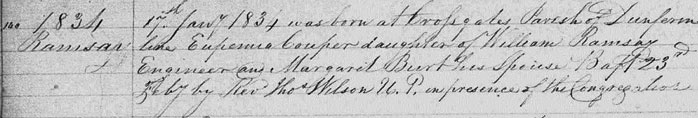 1834 17th Jany 1834 was born at Crossgates Parish of Dunferm
Ramsay line Eupemia Couper daughter of William Ramsay
Engineer and Margaret Burt his Spouse Bapt 23rd
Feby by Revd Thos Wilson U.P. in presence of the Congregation